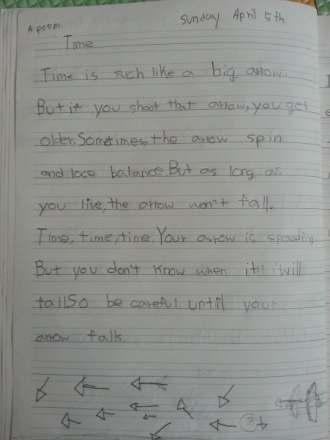 A poem
Sunday April 5th
Time
Time is such like a big arrow.
But if you shoot that arrow, you get
older. Sometimes the arrow spin
and lose balance. But as long as
you live, the arrow won't fall.
Time, time, time. Your arrow is
But you don't know when will
fall So be careful until your
arrow falls.